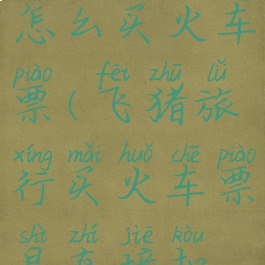 怎么买火车
piào fēi zhū lǚ
票(飞猪旅
xíng mǎi huǒ chē piào
行买火车票
shì zhí jiē kòu
是直接扣